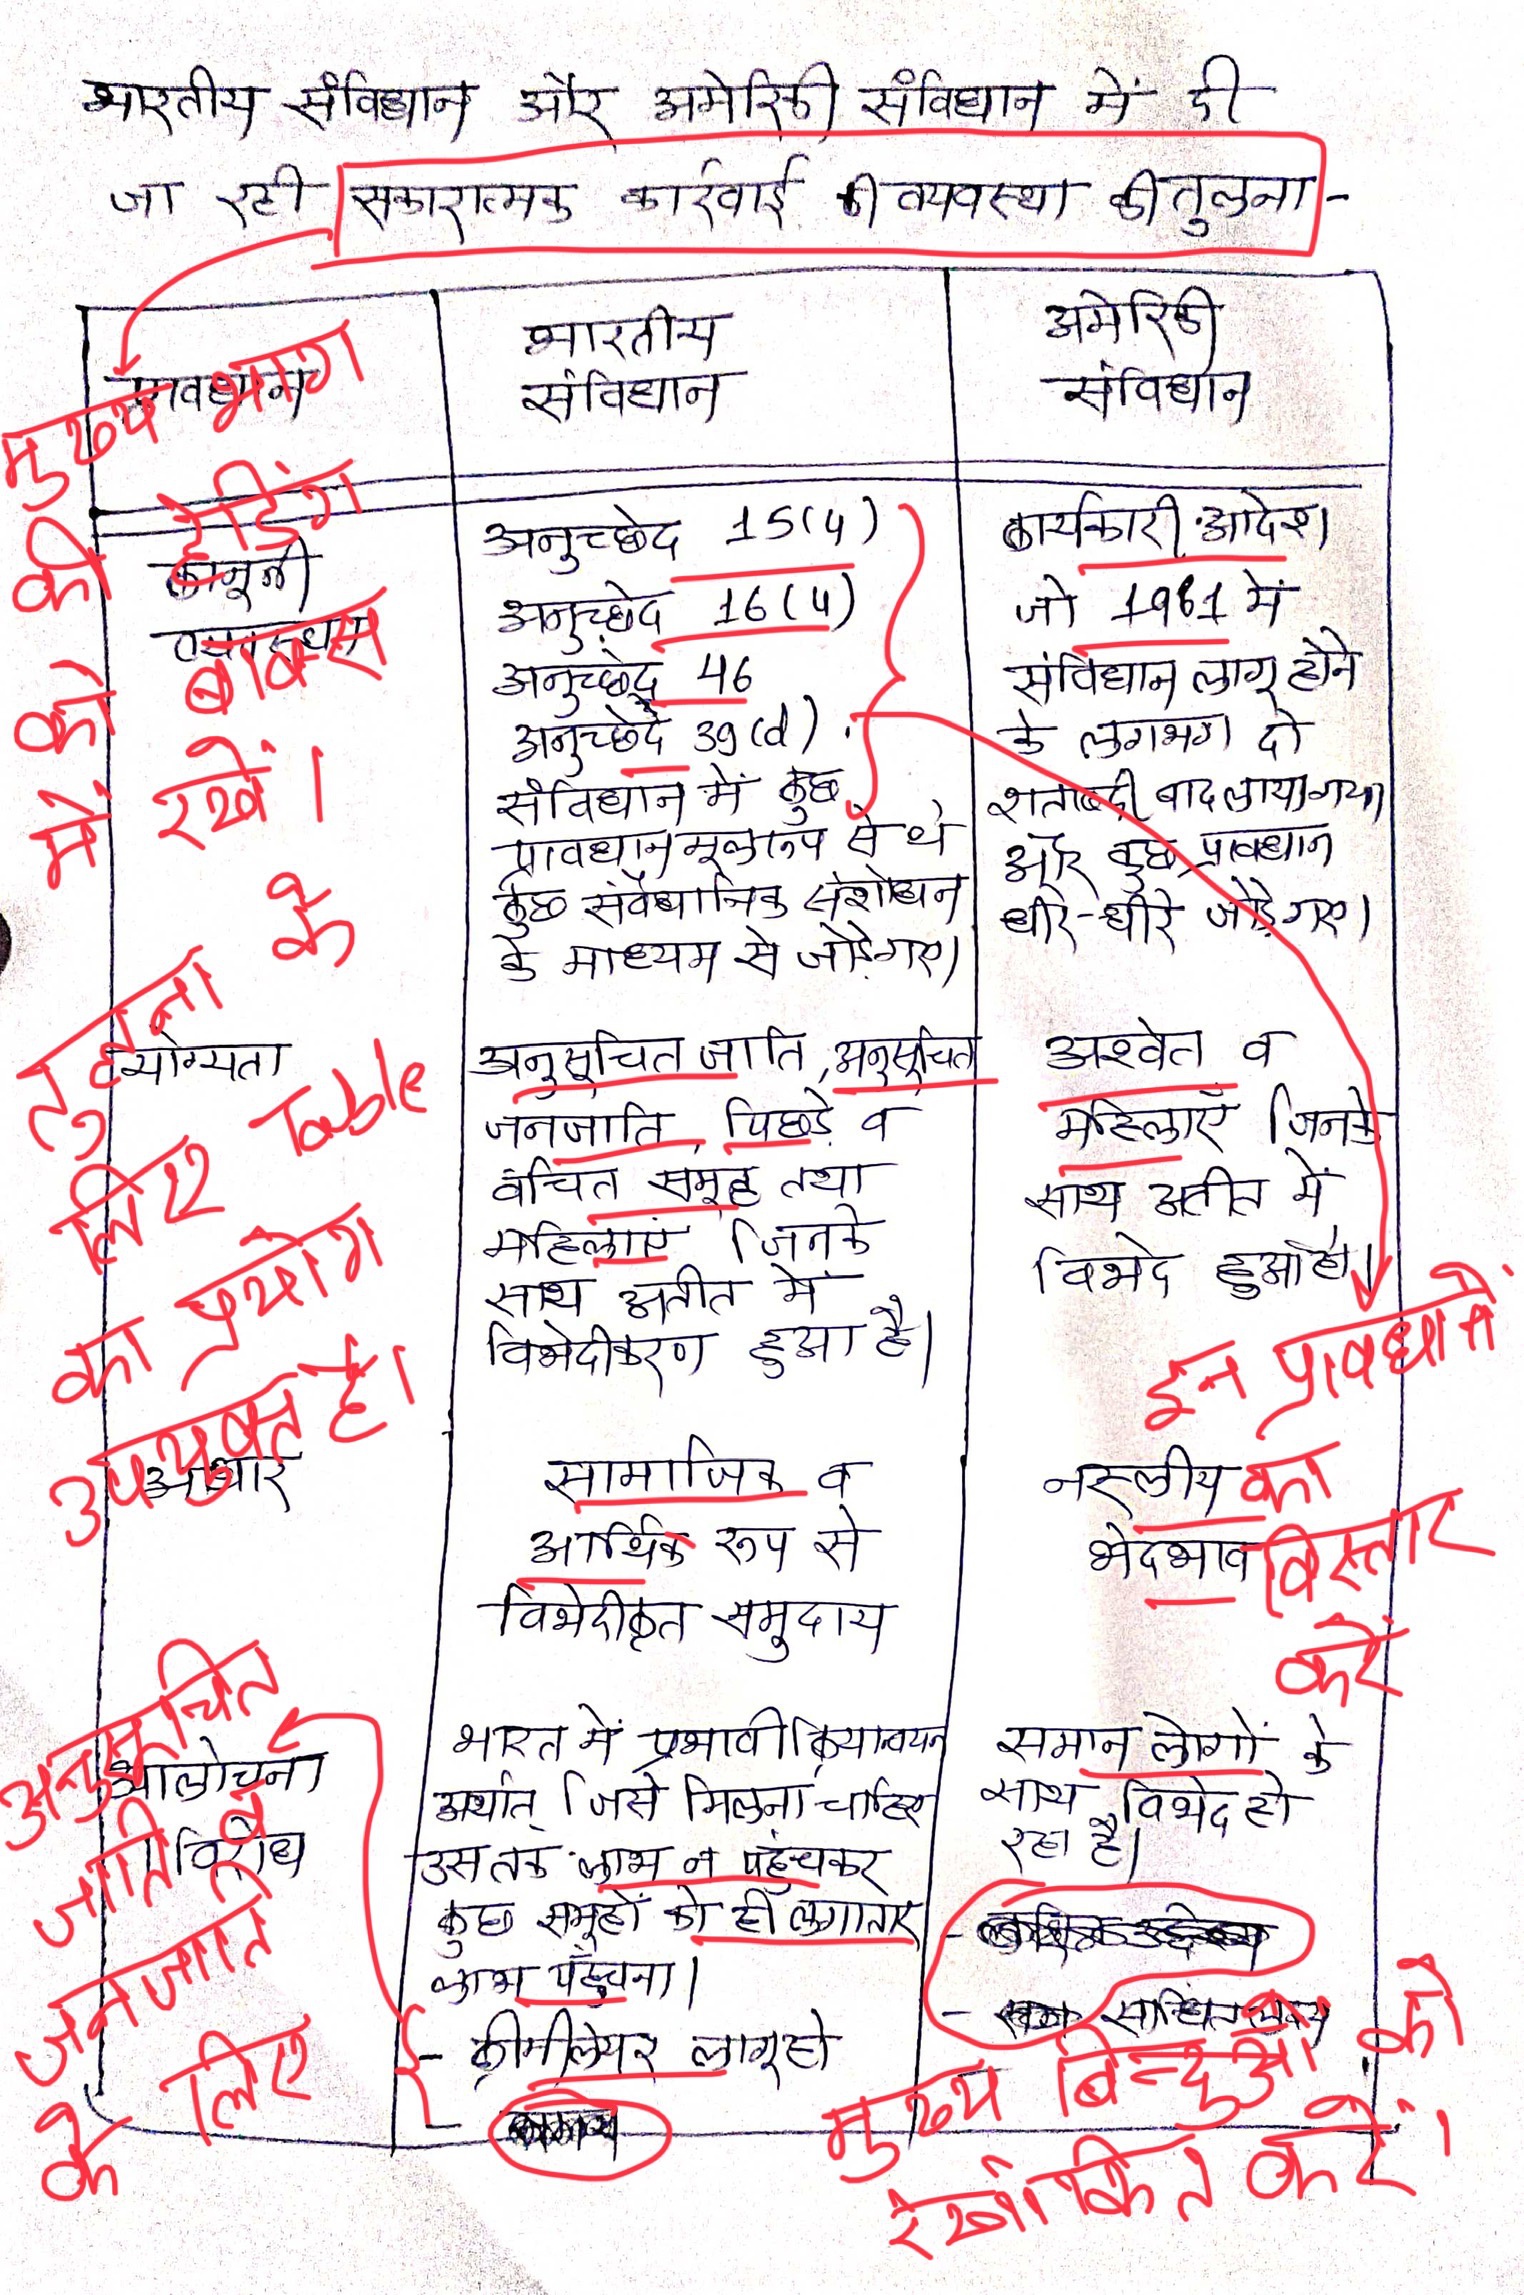 भारतीय संविधान और अमेरिकी संविधान में दी
जा रही सकारात्मक कार्रवाई की व्यवस्था की तुलना-
प्रावधान
भारतीय
संविधान
अमेरिकी
संविधान
मुख्य भाग
की हेडिंग
को बॉक्स
में रखें।
कानूनी
व्यवस्था
अनुच्छेद 15(4)
अनुच्छेद 16(4)
अनुच्छेद 46
अनुच्छेद 39(d).
संविधान में कुछ
प्रावधान मूलरूप से थे
कुछ संवैधानिक संशोधन
के माध्यम से जोड़े गए।
कार्यकारी आदेश
जो 1961 में
संविधान लागू होने
के लगभग दो
शताब्दी बाद लाया गया
और कुछ प्रावधान
धीरे-धीरे जोड़े गए।
तुलना के
लिए Table
का प्रयोग
उपयुक्त है।
योग्यता
अनुसूचित जाति, अनुसूचित
जनजाति, पिछड़े व
वंचित समूह तथा
महिलाएं जिनके
साथ अतीत में
विभेदीकरण हुआ है।
अश्वेत व
महिलाएँ जिनके
साथ अतीत में
विभेद हुआ है।
इन प्रावधानों
का
विस्तार
करें
आधार
सामाजिक व
आर्थिक रूप से
विभेदीकृत समुदाय
नस्लीय
भेदभाव
आलोचना
विरोध
भारत में प्रभावी क्रियान्वयन
अर्थात् जिसे मिलना चाहिए
उस तक लाभ न पहुंचकर
कुछ समूहों को ही लगातार
लाभ पहुँचना।
- क्रीमीलेयर लागू हो
समान लोगों के
साथ विभेद हो
रहा है।
अनुसूचित
जाति व
जनजाति
के लिए
मुख्य बिन्दुओं को
रेखांकित करें।